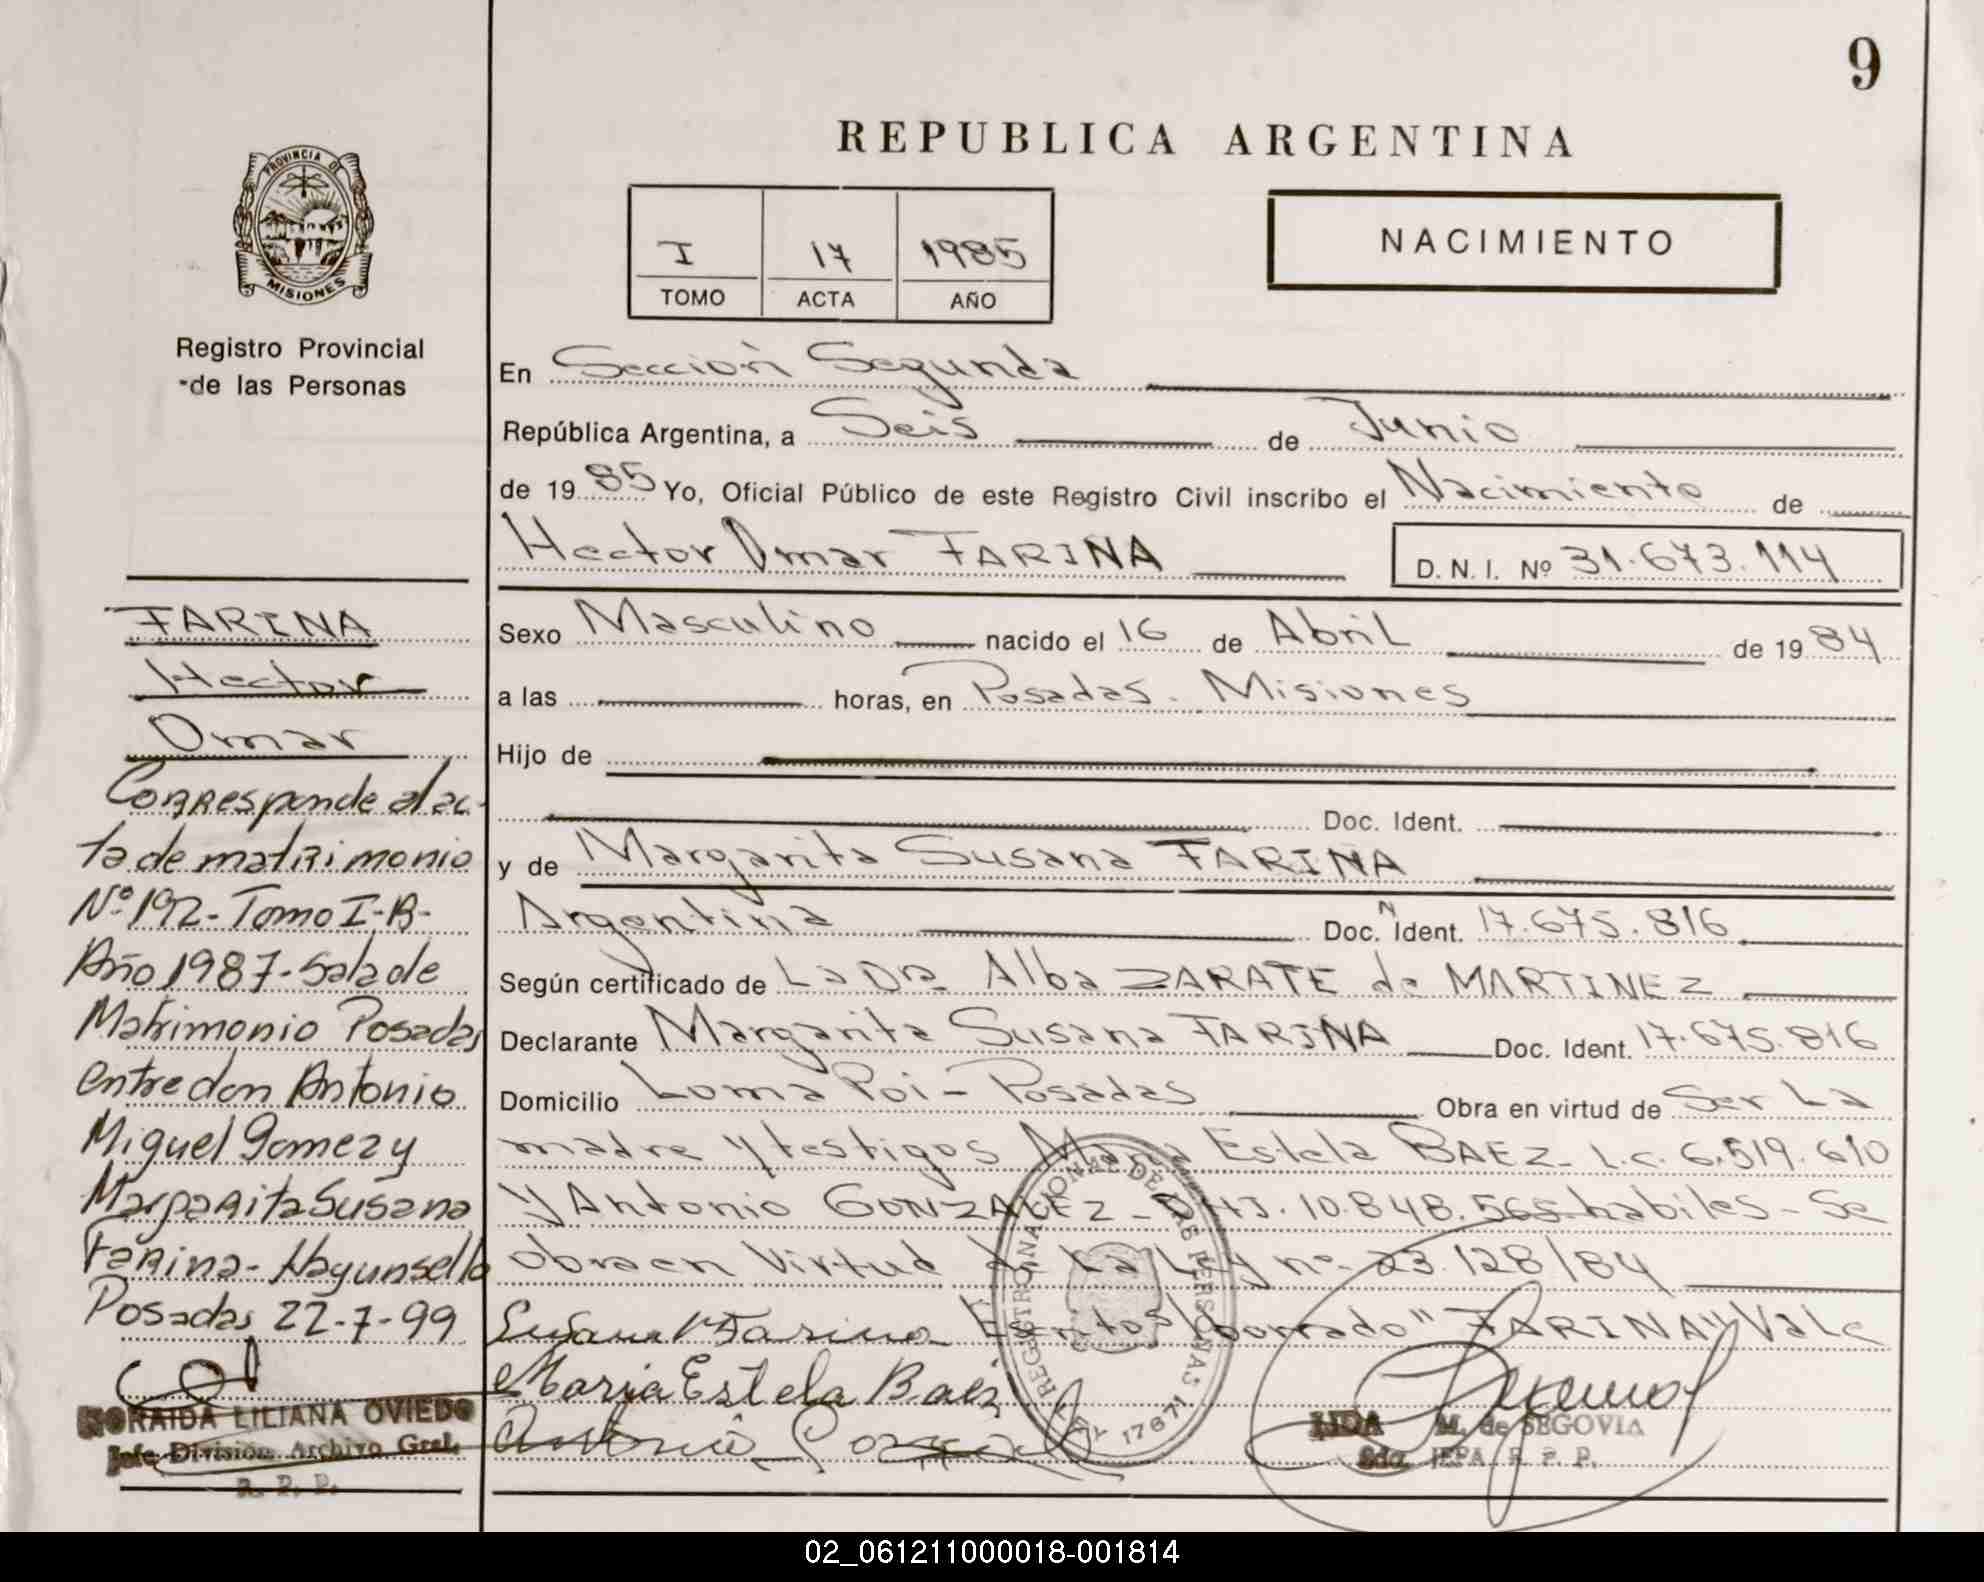 9
REPUBLICA ARGENTINA
PROVINCIA DE
MISIONES
I 17 1985
TOMO ACTA AÑO
NACIMIENTO
Registro Provincial
de las Personas
En Sección Segunda
República Argentina, a Seis de Junio
de 1985 Yo, Oficial Público de este Registro Civil inscribo el Nacimiento de
Hector Omar FARINA D. N. I. Nº 31.673.114
Sexo Masculino nacido el 16 de Abril de 1984
a las horas, en Posadas - Misiones
Hijo de
Doc. Ident.
y de Margarita Susana FARINA
Argentina Doc. Ident. 17.675.816
Según certificado de La Dra Alba ZARATE de MARTINEZ
Declarante Margarita Susana FARINA Doc. Ident. 17.675.816
Domicilio Loma Poi - Posadas Obra en virtud de Ser La
madre y testigos Maria Estela BAEZ - L.C. 6.519.610
y Antonio GONZALEZ - 10.848.565 habiles - Se
obra en Virtud de La Ley nº 23.128/84
Susana M Farina borrado "FARINA" Vale
Maria Estela Baez
Antonio
FARINA
Hector
Omar
Corresponde al ac-
ta de matrimonio
Nº 192 - Tomo I-B-
Año 1987 - Sala de
Matrimonio Posadas
entre don Antonio
Miguel Gomez y
Margarita Susana
Farina - Hay un sello
Posadas 22-7-99
ZORAIDA LILIANA OVIEDO
Jefe División Archivo Gral.
R. P. P.
REGISTRO PERSONAS
LEY 17671
LIDA M. de SEGOVIA
Sda. JEFA R. P. P.
02_061211000018-001814